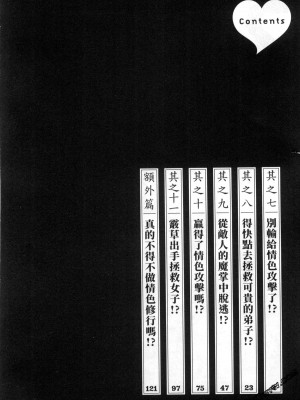 Contents
其之七 別輸給情色攻擊了!? 3
其之八 得快點去拯救可貴的弟子!? 23
其之九 從敵人的魔掌中脫逃!? 47
其之十 贏得了情色攻擊嗎!? 75
其之十一 叢草出手拯救女子!? 97
額外篇 真的不得不做情色修行嗎!? 121